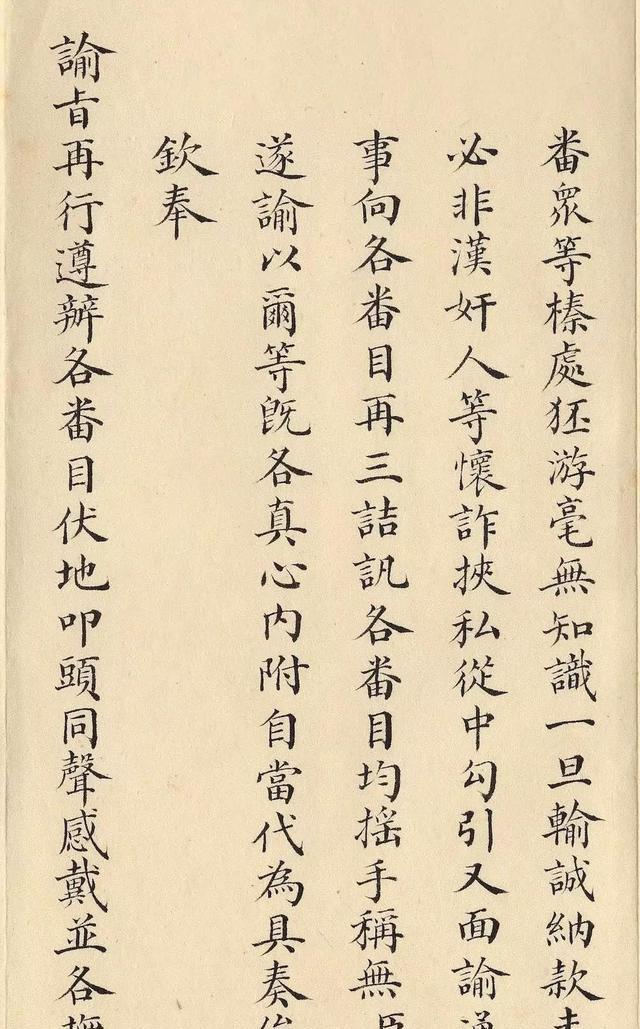 番眾等榛處狉游毫無知識一旦輸誠納款
必非漢奸人等懷詐挾私從中勾引又面諭
事向各番目再三詰訊各番目均搖手稱無
遂諭以爾等既各真心內附自當代為具奏
欽奉
諭旨再行遵辦各番目伏地叩頭同聲感戴並各